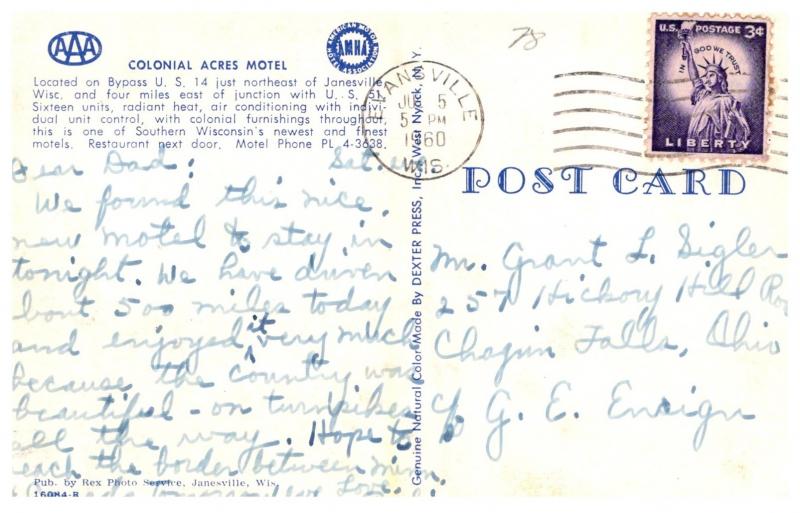 AAA
AMERICAN MOTOR HOTEL ASSOCIATION
AMHA
COLONIAL ACRES MOTEL
Located on Bypass U. S. 14 just northeast of Janesville
Wisc, and four miles east of junction with U. S. 51.
Sixteen units, radiant heat, air conditioning with indivi-
dual unit control, with colonial furnishings throughout,
this is one of Southern Wisconsin's newest and finest
motels. Restaurant next door. Motel Phone PL 4-3638.
Dear Dad: Sat.
We found this nice,
new motel to stay in
tonight. We have driven
bout 500 miles today
and enjoyed it very much
because the country was
beautiful - on turnpikes
all the way. Hope to
each the border between Minn.
Love,
Pub. by Rex Photo Service, Janesville, Wis.
16084-R
Genuine Natural Color Made by DEXTER PRESS, Inc., West Nyack, N. Y.
78
EVANSVILLE
5
5 PM
1960
WIS.
U.S. POSTAGE 3¢
IN GOD WE TRUST
LIBERTY
POST CARD
Mr. Grant L. Sigler
257 Hickory Hill
Chagrin Falls, Ohio
c/o G. E. Ensign